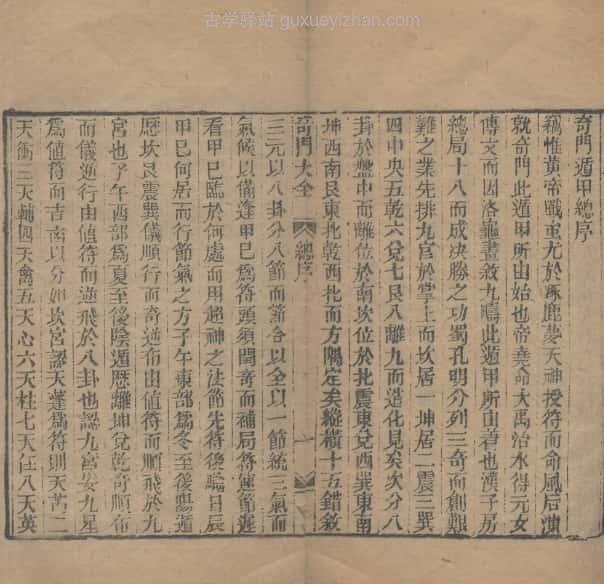 古学驿站 guxueyizhan.com
奇門遁甲總序
竊惟黃帝戰蚩尤於涿鹿夢天神授符而命風后演
就奇門此遁甲所由始也帝堯命大禹治水得元女
傳文而因洛龜畫敘九疇此遁甲所由著也漢子房
總局十八而成決勝之功蜀孔明分列三奇而創艱
難之業先排九宮於掌上而坎居一坤居二震三巽
四中央五乾六兌七艮八離九而造化見矣次分八
卦於盤中而離位於南坎位於北震東兌西巽東南
坤西南艮東北乾西北而方隅定矣縱橫十五錯敘
奇門大全 總序 一
三元以八卦分八節而節各以全以一節統三氣而
氣候以備逢甲巳為符頭須閏奇而補局符應節遲
看甲巳臨於何處而用超神之法節先符後驗日辰
甲巳何居而行節氣之方子午東部為冬至後陽遁
歷坎艮震巽儀順行而奇逆布由值符而順飛於九
宮也子午西部為夏至後陰遁歷離坤兌乾奇順布
而儀逆行由値符而逆飛於八卦也認九宮矣九星
為值符而吉凶以分如坎宮認天蓬為符則天芮二
天衝三天輔四天禽五天心六天柱七天任八天英